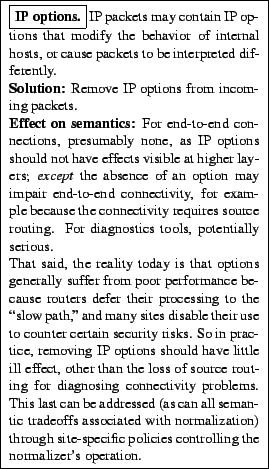 IP options. IP packets may contain IP op-
tions that modify the behavior of internal
hosts, or cause packets to be interpreted dif-
ferently.
Solution: Remove IP options from incom-
ing packets.
Effect on semantics: For end-to-end con-
nections, presumably none, as IP options
should not have effects visible at higher lay-
ers; except the absence of an option may
impair end-to-end connectivity, for exam-
ple because the connectivity requires source
routing. For diagnostics tools, potentially
serious.
That said, the reality today is that options
generally suffer from poor performance be-
cause routers defer their processing to the
“slow path,” and many sites disable their use
to counter certain security risks. So in prac-
tice, removing IP options should have little
ill effect, other than the loss of source rout-
ing for diagnosing connectivity problems.
This last can be addressed (as can all seman-
tic tradeoffs associated with normalization)
through site-specific policies controlling the
normalizer's operation.